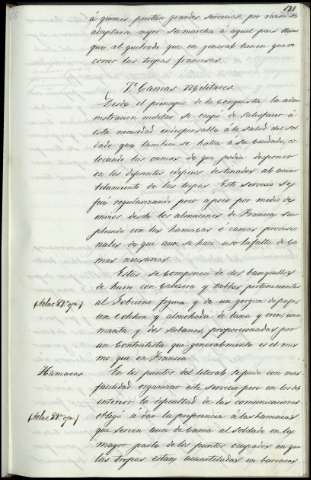 121
á quienes puedan prestar servicios, por
adoptarse aquí la marcha á aquel pais
que al quebrado que en general tienen que
correr las tropas francesas.
7º Camas militares.
Desde el principio de la conquista la administracion
militar se ocupó de satisfacer á
esta necesidad indispensable á la salud del soldado
que tambien se halla á su cuidado,
colocando las camas de que podia disponer
en los diferentes edificios destinados al acuartelamiento
de las tropas. Este servicio se
fué regularizando poco á poco por medio de
envios desde los almacenes de Francia,
supliendo con las hamacas ó camas provisionales
de que aun se hace uso la falta de camas
necesarias.
Estas se componen de dos banquillos
de hierro con cabecera y tablas pertenecientes
al Gobierno, y de un gergon de paja,
un colchon y almohada de lana y crin, una
manta y dos sabanas, proporcionadas por
un contratista que generalmente es el mismo
que en Francia.
Hamacas
En los puntos del litoral se pudo con mas
facilidad organizar este servicio pero en los del
interior la dificultad de las comunicaciones
obligó á dar la preferencia á las hamacas
que servian de cama al soldado en la
mayor parte de los puntos ocupados en que
las tropas estan acuarteladas en barracas